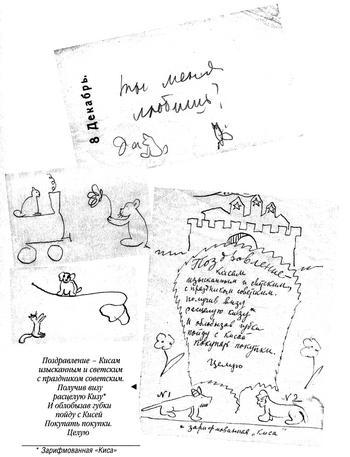 8 Декабрь.
Ты меня
любишь?
Да
Поздравление
Кисам
изысканным и светским
с праздником советским.
Получив визу
расцелую Кизу*
И облобызав губки
пойду с Кисей
Покупать покупки.
Целую
№1
№2
* зарифмованная „Киса"
Поздравление – Кисам
изысканным и светским
с праздником советским.
Получив визу
расцелую Кизу*
И облобызав губки
пойду с Кисей
Покупать покупки.
Целую
* Зарифмованная «Киса»